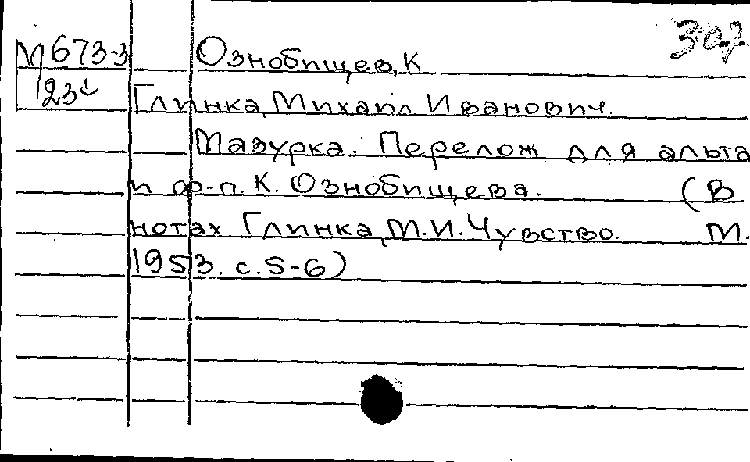 307
М673-3 Ознобищев, К
Глинка, Михаил Иванович.
Мазурка. Перелож для альта
и ф-п. К. Ознобищева. (В
нотах Глинка, М.И. Чувство. М.
1953. с. 5-6)